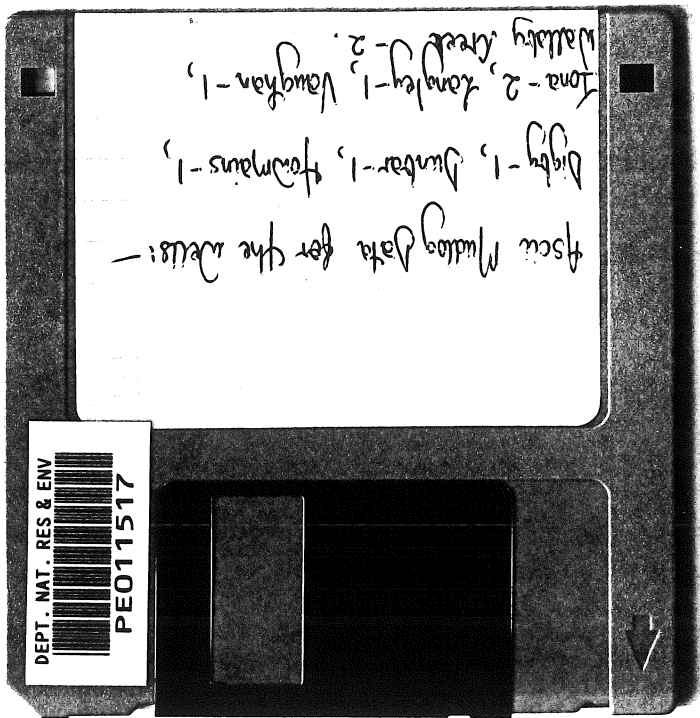 Ascii Mudlog Data for the wells:-
Digby-1, Dunbar-1, Howmains-1,
Iona-2, Langley-1, Vaughan-1,
Wallaby Creek-2.
DEPT. NAT. RES & ENV
PE011517